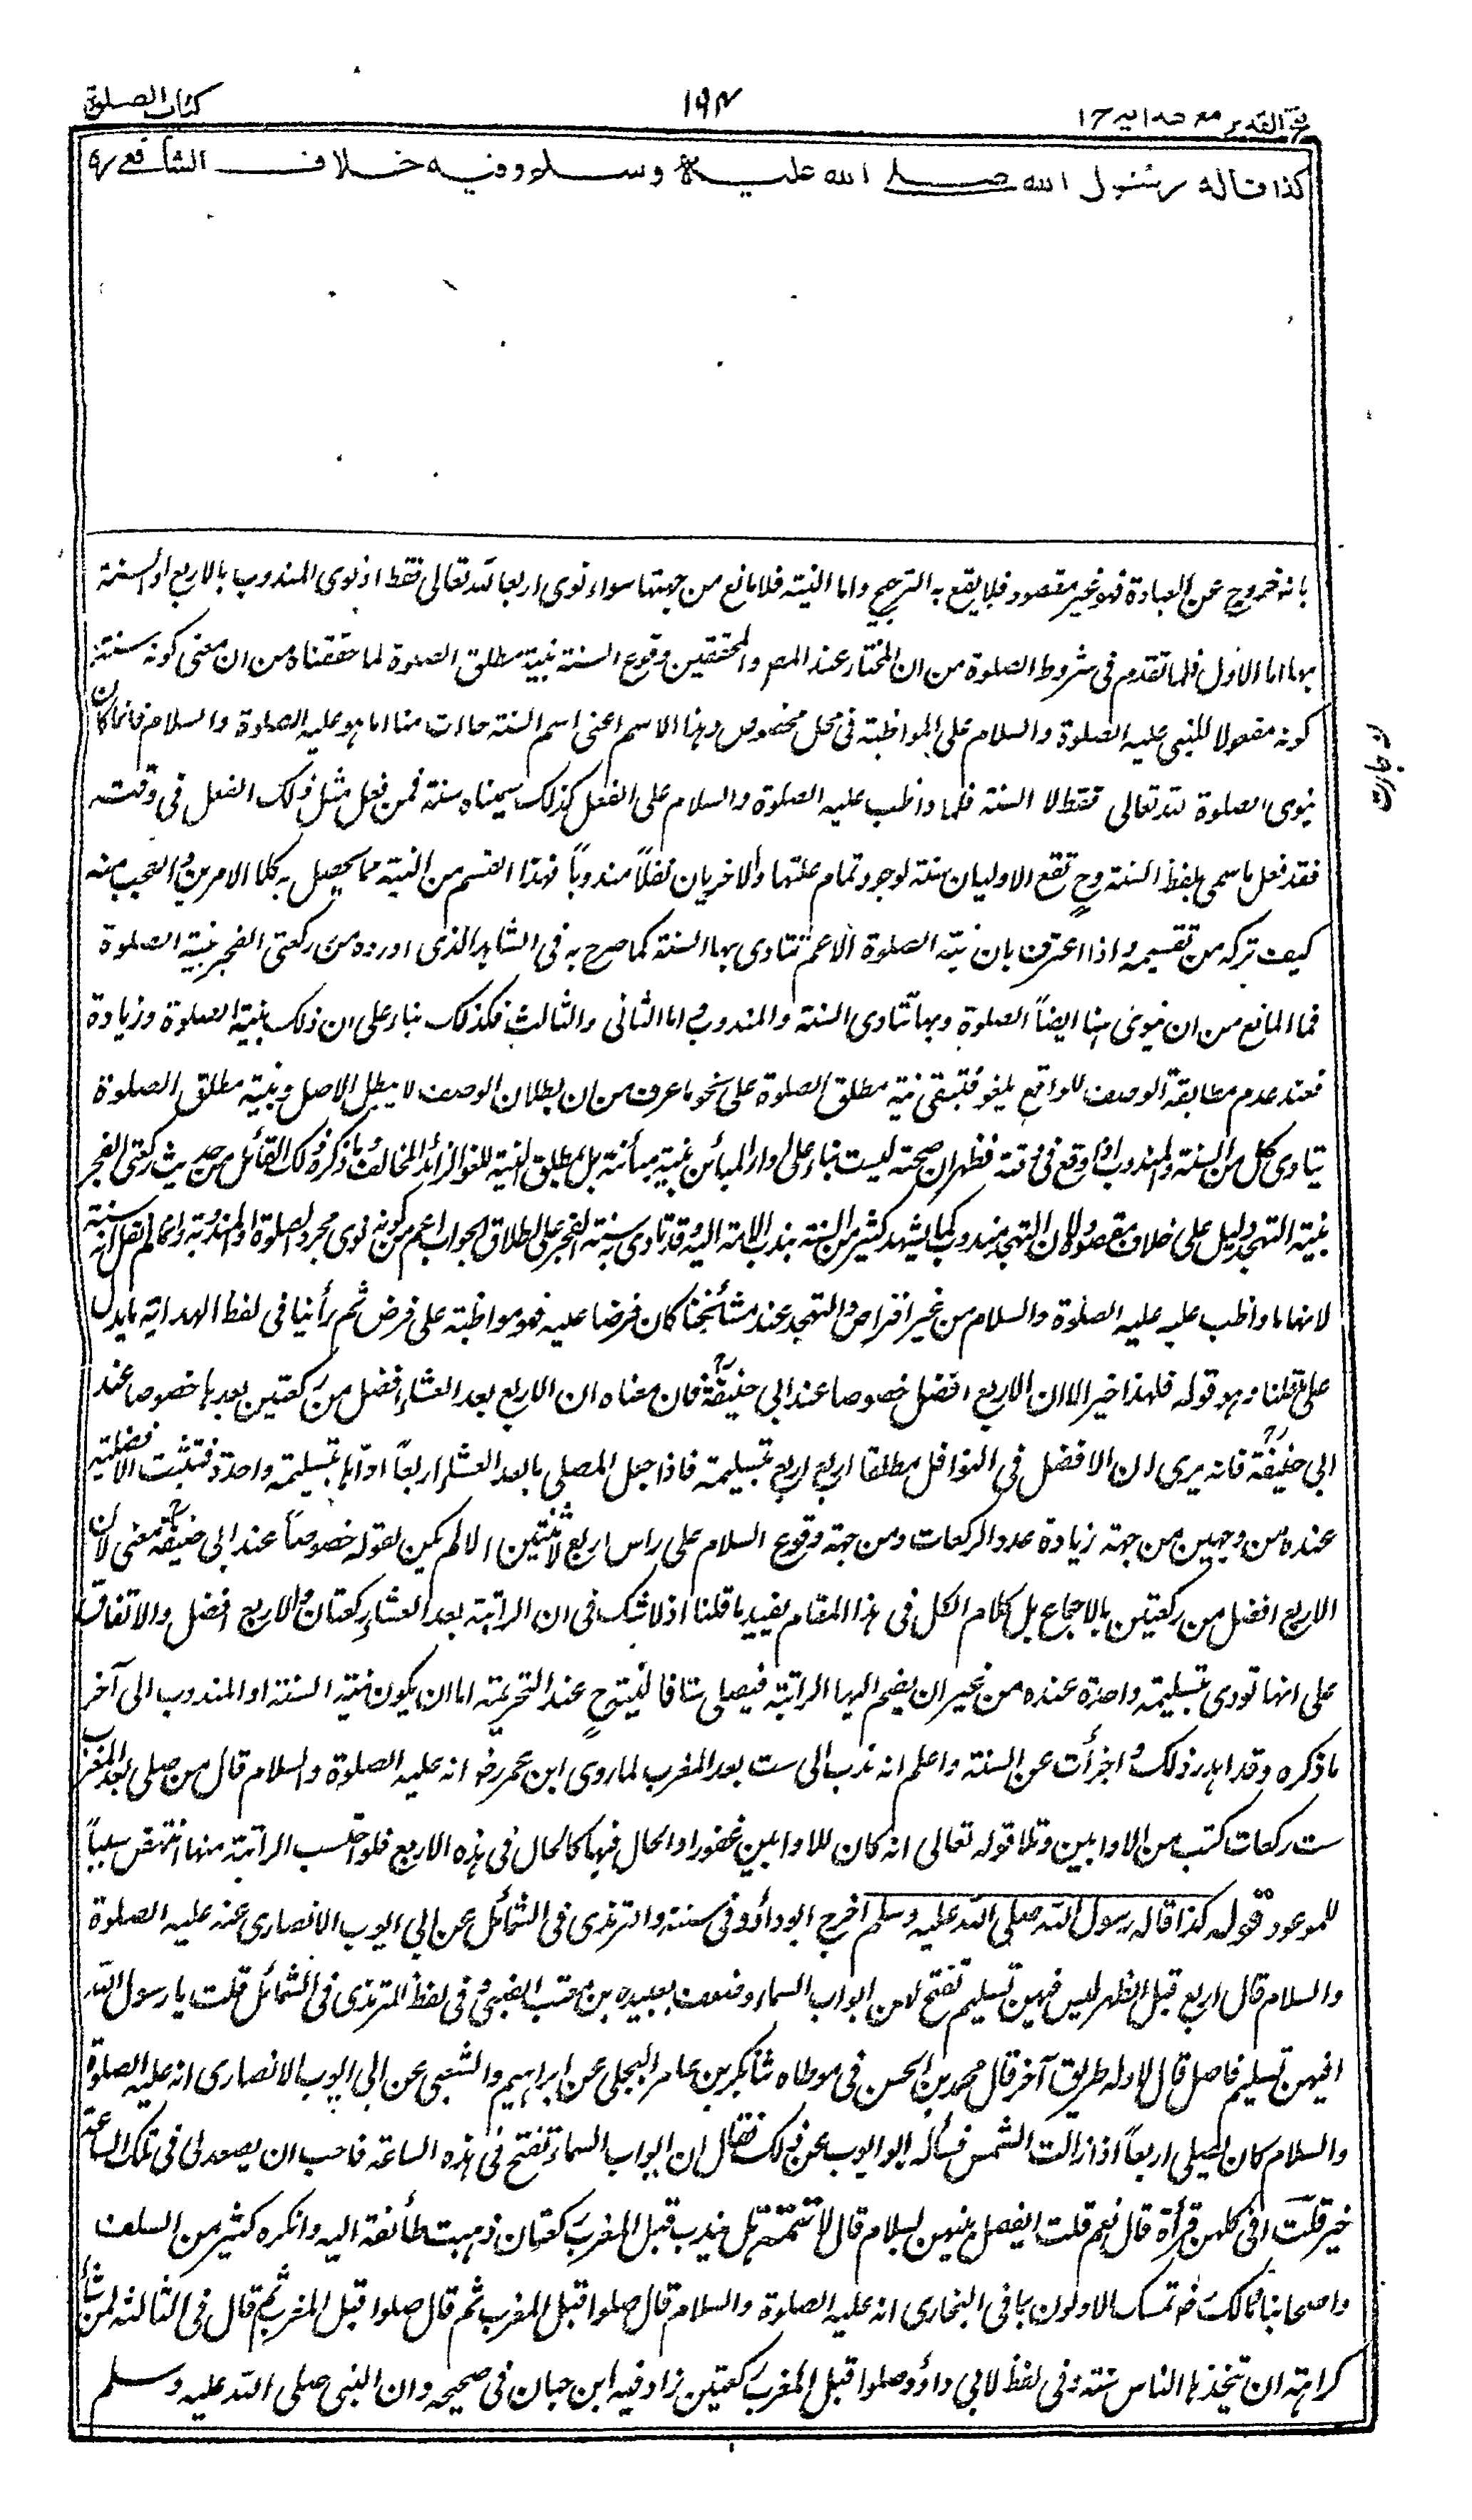 فتح القدير مع هدايه ١٧
١٩٤
كتاب الصلوة
كذا قاله رسول الله صلى الله عليه وسلم وفيه خلاف الشافعي
بانه خروج عن العبادة فهو غير مقصود فلا يقع به الترجيح واما النية فلا مانع من جهتها سواء نوى اربعا لله تعالى فقط او نوى المندوب بالاربع او السنة
بها اما الاول فلما تقدم فى شروط الصلوة من ان المختار عند المصـ والمحققين وقوع السنة بنية مطلق الصلوة لما حققناه من ان معنى كونه سنة
كونه مفعولا للنبى عليه الصلوة والسلام على المواظبة فى محل مخصوص وهذا الاسم اعنى اسم السنة حادث منا اما هو عليه الصلوة والسلام فانما كان
ينوى الصلوة لله تعالى فقط لا السنة فلما واظب عليه الصلوة والسلام على الفعل كذلك سميناه سنة فمن فعل مثل ذلك الفعل فى وقته
فقد فعل ما سمى بلفظ السنة وح تقع الاوليان سنة لوجود تمام علتها والاخريان نفلاً مندوباً فهذا القسم من النية مما يحصل به كلا الامرين والعجب منه
كيف تركه من تقسيمه واذا اعترف بان نية الصلوة الاعم تتادى بها السنة كما صرح به فى الشاهد الذى اورده من ركعتى الفجر بنية الصلوة
فما المانع من ان ينوى هنا ايضاً الصلوة وبها تتادى السنة والمندوب واما الثانى والثالث فكذلك بناء على ان ذلك بنية الصلوة وزيادة
فعند عدم مطابقة الوصف للواقع يلغو فتبقى نية مطلق الصلوة على نحو ما عرف من ان بطلان الوصف لا يبطل الاصل وبنية مطلق الصلوة
يتادى كل من السنة والمندوب اذا وقع فى وقته فظهر ان صحته ليست بناء على اداء المباين بنية مباينة بل بمطلق النية للغو الزائد المخالف وما ذكره ذلك القائل من حديث ركعتى الفجر
بنية التهجد دليل على خلاف مقصوده لان التهجد مندوب كما يشهد كثير من السنة بندب الامة اليه وقد تادى به سنة الفجر على اطلاق الجواب اعم من كونه نوى مجرد الصلوة او المندوبة وانما لم نقل انه سنة
لانها ما واظب عليه عليه الصلوة والسلام من غير افتراض والتهجد عند مشائخنا كان فرضا عليه فهو مواظبة على فرض ثم رأينا فى لفظ الهداية ما يدل
على ما قلنا وهو قوله فلهذا خير الا ان الاربع افضل خصوصا عند ابى حنيفة فان معناه ان الاربع بعد العشاء افضل من ركعتين بعدها خصوصا عند
ابى حنيفة فانه يرى ان الافضل فى النوافل مطلقا اربع اربع بتسليمة فاذا جعل المصلى ما بعد العشاء اربعاً اداها بتسليمة واحدة فتثبت الافضلية
عنده من وجهين من جهة زيادة عدد الركعات ومن جهة وقوع السلام على راس اربع لا ثنتين والا لم يكن لقوله خصوصاً عند ابى حنيفة معنى لان
الاربع افضل من ركعتين بالاجماع بل كلام الكل فى هذا المقام يفيد ما قلنا اذ لا شك فى ان الراتبة بعد العشاء ركعتان والاربع افضل والاتفاق
على انها تودى بتسليمة واحدة عنده من غير ان يضم اليها الراتبة فيصلى ستا فالنية ح عند التحريمة اما ان يكون نية السنة او المندوب الى آخر
ما ذكره وقد اهدر ذلك واجزأت عن السنة واعلم انه ندب الى ست بعد المغرب لما روى ابن عمر رض انه عليه الصلوة والسلام قال من صلى بعد المغرب
ست ركعات كتب من الاوابين وتلا قوله تعالى انه كان للاوابين غفورا والحال فيها كالحال فى هذه الاربع فلو احتسب الراتبة منها انتهض سبباً
للموعود قوله كذا قاله رسول الله صلى الله عليه وسلم اخرج ابو داؤد فى سننه والترمذى فى الشمائل عن ابى ايوب الانصارى عنه عليه الصلوة
والسلام قال اربع قبل الظهر ليس فيهن تسليم تفتح لهن ابواب السماء وضعف بعبيدة بن معتب الضبى وفى لفظ الترمذى فى الشمائل قلت يا رسول الله
افيهن تسليم فاصل قال لا وله طريق آخر قال محمد بن الحسن فى موطاه ثنا بكير بن عامر البجلى عن ابراهيم والشعبى عن ابى ايوب الانصارى انه عليه الصلوة
والسلام كان يصلى اربعاً اذا زالت الشمس فسأله ابو ايوب عن ذلك فقال ان ابواب السماء تفتح فى هذه الساعة فاحب ان يصعد لى فى تلك الساعة
خير قلت افى كلهن قرأة قال نعم قلت ايفصل بينهن بسلام قال لا تتمة هل يندب قبل المغرب ركعتان ذهبت طائفة اليه وانكره كثير من السلف
واصحابنا ومالك رض تمسك الاولون بما فى البخارى انه عليه الصلوة والسلام قال صلوا قبل المغرب ثم قال صلوا قبل المغرب ثم قال فى الثالثة لمن شاء
كراهة ان يتخذها الناس سنة وفى لفظ لابى داؤد صلوا قبل المغرب ركعتين زاد فيه ابن حبان فى صحيحه وان النبى صلى الله عليه وسلم